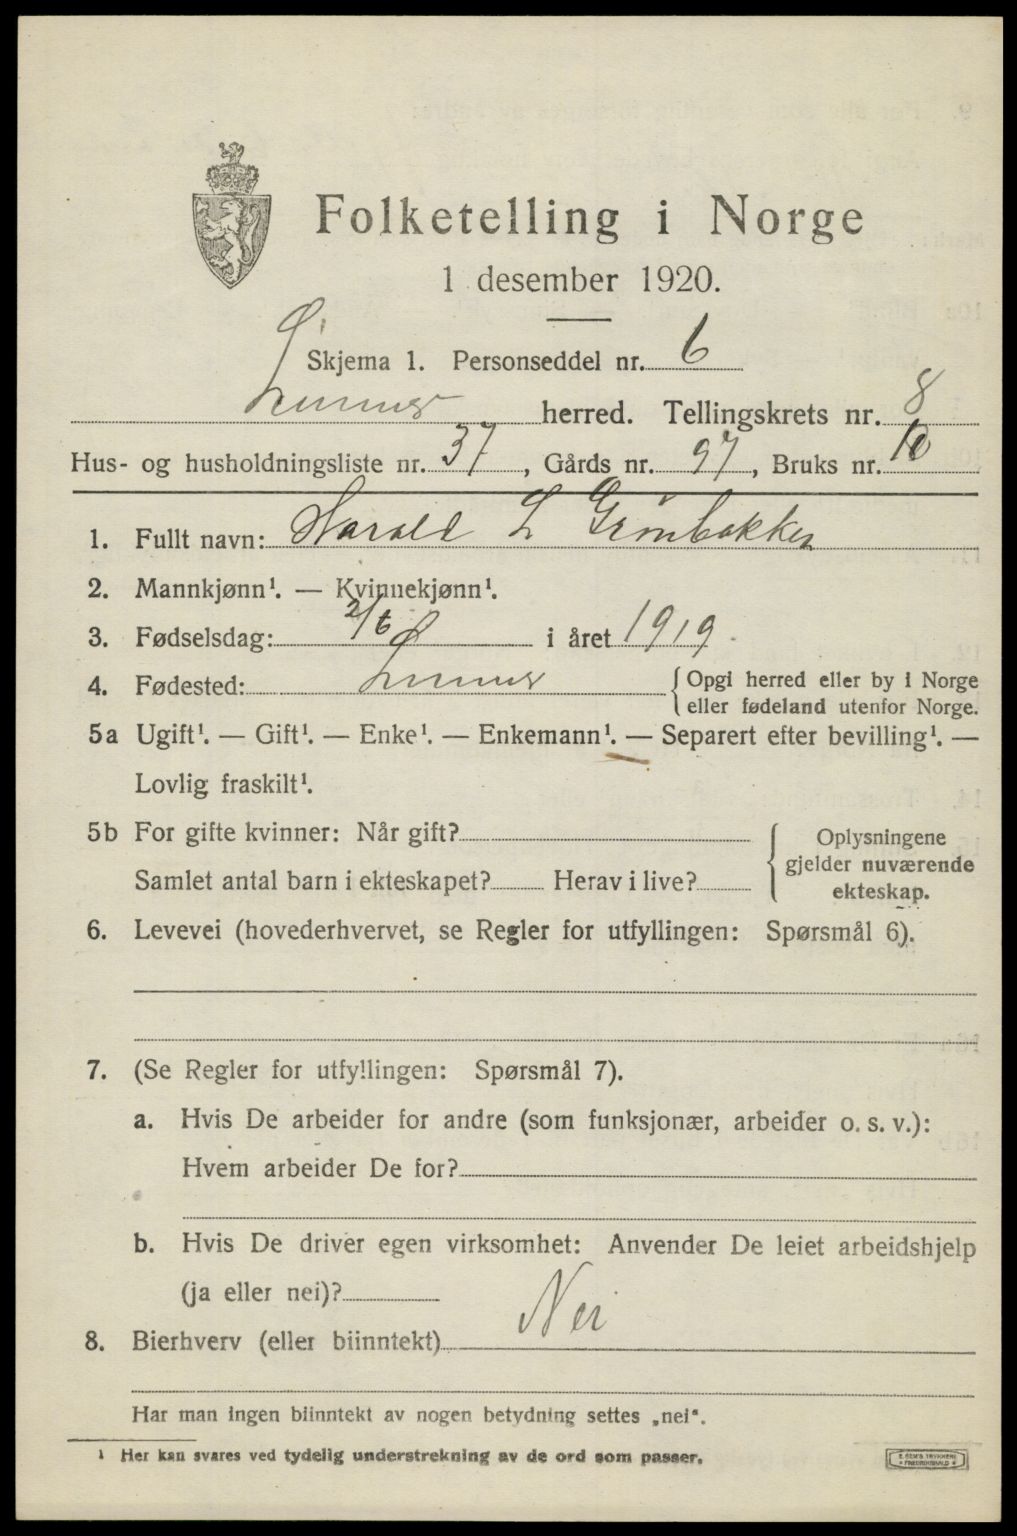 Folketelling i Norge
1 desember 1920.
Skjema 1. Personseddel nr. 6
Lunner herred. Tellingskrets nr. 8
Hus- og husholdningsliste nr. 37, Gårds nr. 97, Bruks nr. 10
1. Fullt navn: Harald L Grinbakken
2. Mannkjønn¹. — Kvinnekjønn¹.
3. Fødselsdag: 2/6 i året 1919
4. Fødested: Lunner { Opgi herred eller by i Norge
eller fødeland utenfor Norge.
5a Ugift¹. — Gift¹. — Enke¹. — Enkemann¹. — Separert efter bevilling¹. —
Lovlig fraskilt¹.
5b For gifte kvinner: Når gift?
Samlet antal barn i ekteskapet? Herav i live?
{ Oplysningene
gjelder nuværende
ekteskap.
6. Levevei (hovederhvervet, se Regler for utfyllingen: Spørsmål 6).
7. (Se Regler for utfyllingen: Spørsmål 7).
a. Hvis De arbeider for andre (som funksjonær, arbeider o. s. v.):
Hvem arbeider De for?
b. Hvis De driver egen virksomhet: Anvender De leiet arbeidshjelp
(ja eller nei)?
8. Bierhverv (eller biinntekt) Nei
Har man ingen biinntekt av nogen betydning settes „nei“.
¹ Her kan svares ved tydelig understrekning av de ord som passer.